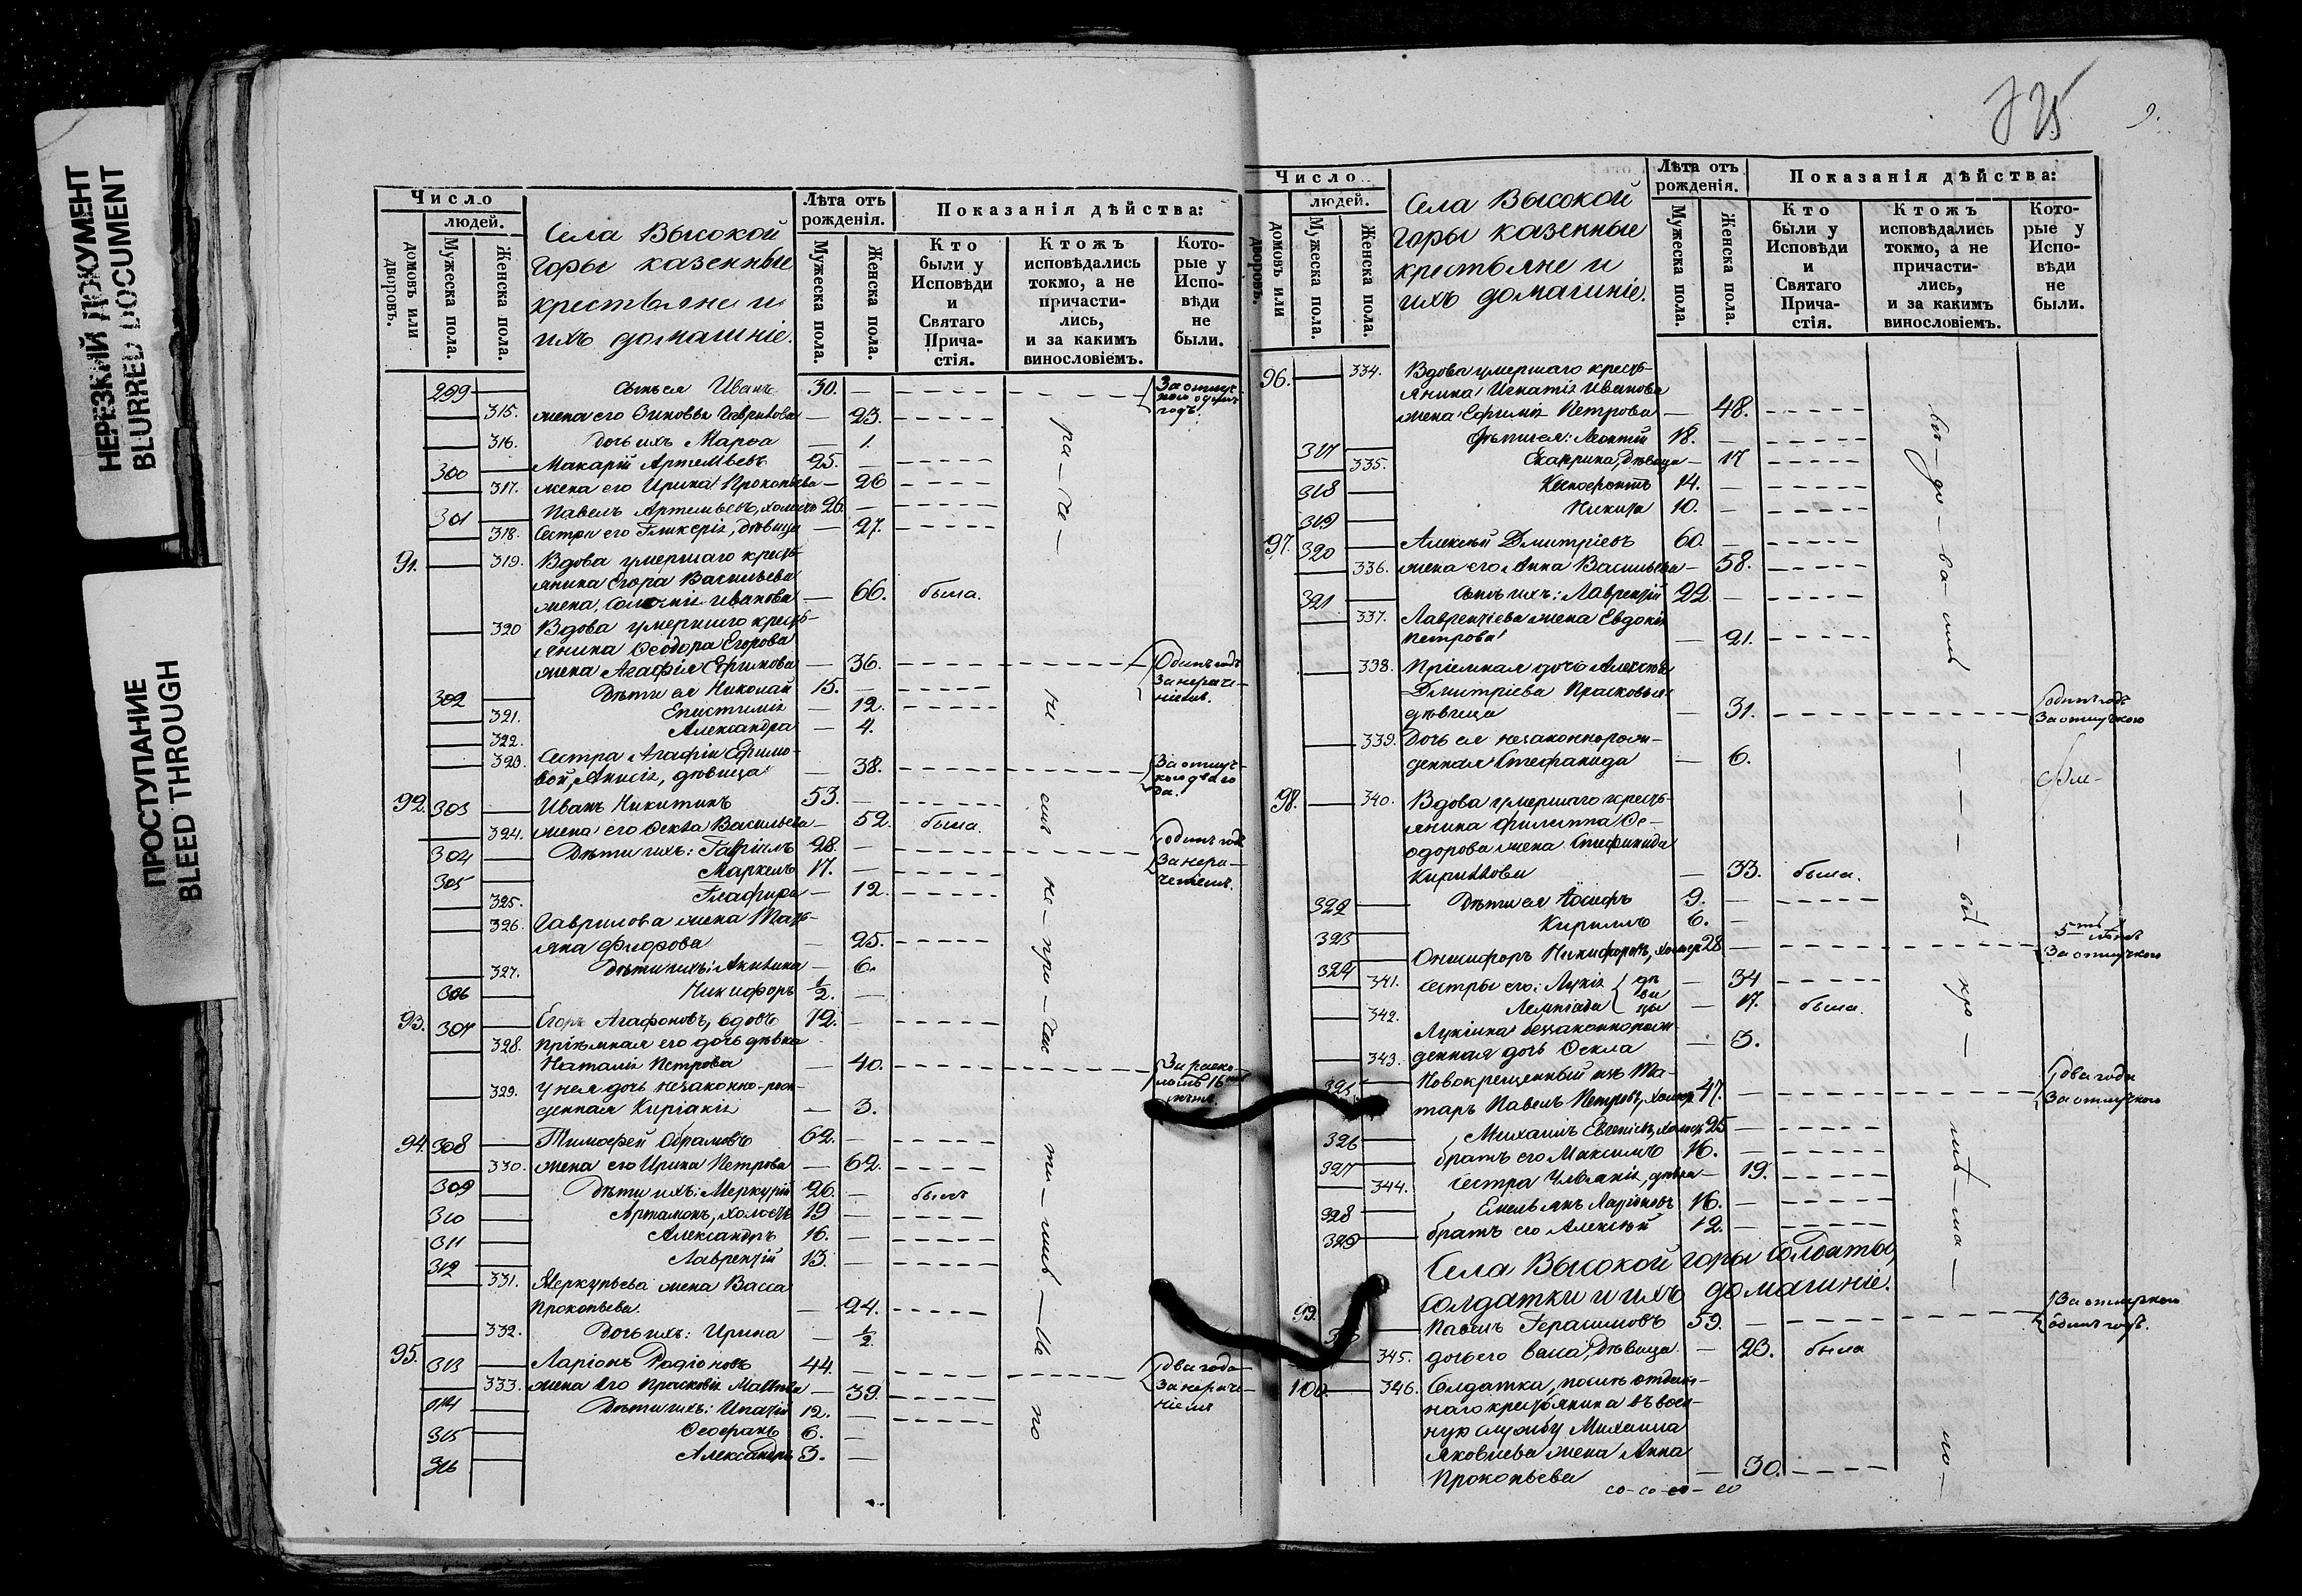 НЕРЕЗКИЙ ДОКУМЕНТ
BLURRED DOCUMENT
ПРОСТУПАНИЕ
BLEED THROUGH
Число
людей.
домовъ или дворовъ.
Мужеска пола.
Женска пола.
Села Высокой
Горы казенные
крестьяне и
ихъ домашніе.
Лѣта отъ рожденія.
Мужеска пола.
Женска пола.
Показанія дѣйства:
Кто были у Исповѣди и Святаго Прича-стія.
Ктожъ исповѣдались токмо, а не причасти-лись, и за какимъ винословіемъ.
Кото-рые у Испо-вѣди не были.
299 Иванъ 30. За отлуч-
315. жена его Зиновья Гаврилова 23. годъ.
316. Дочь ихъ Марѳа 1.
300 Макарій Артемьевъ 25.
317. жена его Ирина Прокопьева 26
301 Павелъ Артемьевъ, холостъ 26.
318. Сестра его Гликерія, дѣвица 27.
91. 319. Вдова умершаго кресть-
янина Егора Васильева
жена Иванова 66. была.
320 Вдова умершаго кресть-
янина Ѳеодора Егорова
жена Агафія Ефимова 36. Одинъ годъ
302 Дѣти ея Николай 15. за нераче-
321. Епистимія 12. ніемъ.
322. Александра 4.
323. Сестра Агафіи Ефимо-
вой, Анисія, дѣвица 38. За отлуч-
92. 303 Иванъ Никитинъ 53.
324. жена его Ѳекла Васильева 52. была.
304 Дѣти ихъ: Гавріилъ 28. одинъ годъ
305 Маркелъ 17. За нера-
325. Глафира 12. ченіемъ.
326. Гаврилова жена Тать-
яна 25.
327. Дѣти ихъ: Акилина 6.
306 Никифоръ 1/2.
93. 307 Егоръ Агафоновъ, вдовъ 72.
328. Пріемная его дочь дѣвка
Наталія Петрова 40. За раско-
329. У нея дочь незаконно-рож-
денная Киріакія 3.
94. 308 Тимоѳей Абрамовъ 62.
330. жена его Ирина Петрова 62.
309 Дѣти ихъ: Меркурій 26. былъ
310 Артамонъ, холостъ 19
311 Александръ 16.
312 Лаврентій 13.
331. Меркурьева жена Васса
Прокопьева. 24.
332. Дочь ихъ: Ирина 1/2
95. 313 Ларіонъ Родіоновъ 44. два года
333. жена его Прасковія 39. За нераче-
314 Дѣти ихъ: Ипатій 12. ніемъ
315 Ѳеофанъ 6.
316 Александръ 3.
Число
людей.
домовъ или дворовъ.
Мужеска пола.
Женска пола.
Села Высокой
Горы казенные
крестьяне и
ихъ домашніе.
Лѣта отъ рожденія.
Мужеска пола.
Женска пола.
Показанія дѣйства:
Кто были у Исповѣди и Святаго Прича-стія.
Ктожъ исповѣдались токмо, а не причасти-лись, и за какимъ винословіемъ.
Кото-рые у Испо-вѣди не были.
96. 334. Вдова умершаго кресть-
янина Игнатія Иванова
жена Ефимія Петрова 48.
317 Дѣти ея: Леонтій 18.
335. Екатерина, дѣвица 17
318 Ксенофонтъ 14.
319 Никита 10.
97. 320 Алексѣй Дмитріевъ 60.
336. жена его Анна Васильева 58.
321 Сынъ ихъ: Лаврентій 22.
337. Лаврентіева жена Евдокія
Петрова 21.
338. Пріемная дочь Алексѣя
Дмитріева Прасковья
дѣвица 31. одинъ годъ За отлучкою
339. Дочь ея незаконнорож-
денная Стефанида 6.
98. 340. Вдова умершаго кресть-
янина Филиппа Ѳе-
одорова жена Стефанида
Кириллова 33. была.
322 Дѣти ея Іосифъ 9.
323 Кириллъ 6.
324 Онисифоръ Никифоровъ, холост 28 5 лѣтъ За отлучкою
341. сестры его: Лукія 34
342. дѣвицы 17. была.
Лукіина беззаконнорож-
343. денная дочь Ѳекла 3.
325 Новокрещенный изъ Та-
таръ Павелъ Петровъ, холост 47. два года За отлучкою
326 Михаилъ холост 25
327 братъ его Максимъ 16.
344. сестра Уліанія, дѣвка 19.
328 Емельянъ Ларіоновъ 16.
329 братъ его Алексѣй 12.
Села Высокой горы солдаты,
солдатки и ихъ домашніе.
99. Павелъ Герасимовъ 59. За отлучкою одинъ годъ.
345. дочь его Васса, дѣвица 23. была
100. 346. Солдатка, послѣ отдан-
наго крестьянина въ воен-
ную службу Михаила
Яковлева жена Анна
Прокопьева 30.